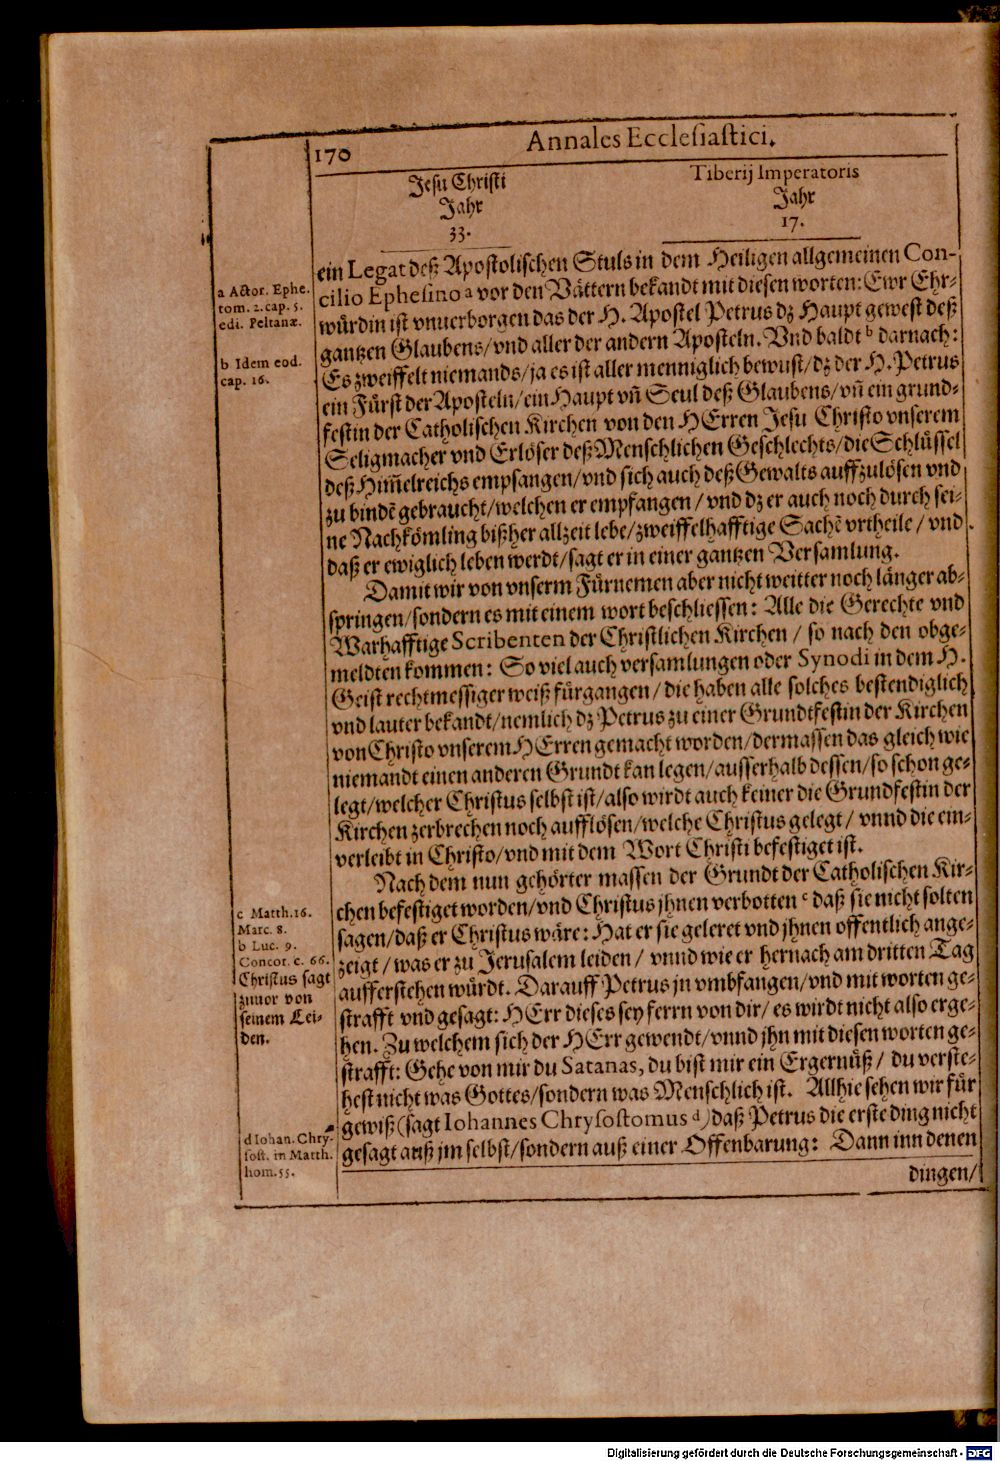 170
Annales Ecclesiastici.
Jesu Christi
Jahr
33.
Tiberij Imperatoris
Jahr
17.
ein Legat deß Apostolischen Stuls in dem Heiligen allgemeinen Con-
cilio Ephesino a vor den Vättern bekandt mit diesen worten: Ewr Ehr-
würdin ist vnuerborgen das der H. Apostel Petrus dz Haupt gewest deß
gantzen Glaubens/vnd aller der andern Aposteln. Vnd baldt b darnach:
Es zweiffelt niemands/ja es ist aller menniglich bewust/dz der H. Petrus
ein Fürst der Aposteln/ein Haupt vñ Seul deß Glaubens/vñ ein grund-
festin der Catholischen Kirchen von den HErren Jesu Christo vnserem
Seligmacher vnd Erlöser deß Menschlichen Geschlechts/die Schlüssel
deß Him̃elreichs empfangen/vnd sich auch deß Gewalts auffzulösen vnd
zu bindẽ gebraucht/welchen er empfangen/vnd dz er auch noch durch sei-
ne Nachkömling bißher allzeit lebe/zweiffelhafftige Sachẽ vrtheile/vnd
daß er ewiglich leben werdt/sagt er in einer gantzen Versamlung.
Damit wir von vnserm Fürnemen aber nicht weitter noch länger ab-
springen/sondern es mit einem wort beschliessen: Alle die Gerechte vnd
Warhafftige Scribenten der Christlichen Kirchen / so nach den obge-
meldten kommen: So viel auch versamlungen oder Synodi in dem H.
Geist rechtmessiger weiß fürgangen / die haben alle solches bestendiglich
vnd lauter bekandt/nemlich dz Petrus zu einer Grundtfestin der Kirchen
von Christo vnserem HErren gemacht worden/dermassen das gleich wie
niemandt einen anderen Grundt kan legen/ausserhalb dessen/so schon ge-
legt/welcher Christus selbst ist/also wirdt auch keiner die Grundfestin der
Kirchen zerbrechen noch aufflösen/welche Christus gelegt/ vnnd die ein-
verleibt in Christo/vnd mit dem Wort Christi befestiget ist.
Nach dem nun gehörter massen der Grundt der Catholischen Kir-
chen befestiget worden/vnd Christus jhnen verbotten c daß sie nicht solten
sagen/daß er Christus wäre: Hat er sie geleret vnd jhnen offentlich ange-
zeigt/was er zu Jerusalem leiden/ vnnd wie er hernach am dritten Tag
aufferstehen würdt. Darauff Petrus jn vmbfangen/vnd mit worten ge-
strafft vnd gesagt: HErr dieses sey ferrn von dir/ es wirdt nicht also erge-
hen. Zu welchem sich der HErr gewendt/vnnd jhn mit diesen worten ge-
strafft: Gehe von mir du Satanas, du bist mir ein Ergernüß/ du verste-
hest nicht was Gottes/sondern was Menschlich ist. Allhie sehen wir für
gewiß (sagt Iohannes Chrysostomus d) daß Petrus die erste ding nicht
gesagt auß jm selbst/sondern auß einer Offenbarung: Dann inn denen
dingen/
a Actor. Ephe.
tom. 2. cap. 5.
edi. Peltanæ.
b Idem eod.
cap. 16.
c Matth. 16.
Marc. 8.
b Luc. 9.
Concor. c. 66.
Christus sagt
zuuor von
seinem Lei-
den.
d Iohan. Chry-
sost. in Matth.
hom. 55.
Digitalisierung gefördert durch die Deutsche Forschungsgemeinschaft - DFG